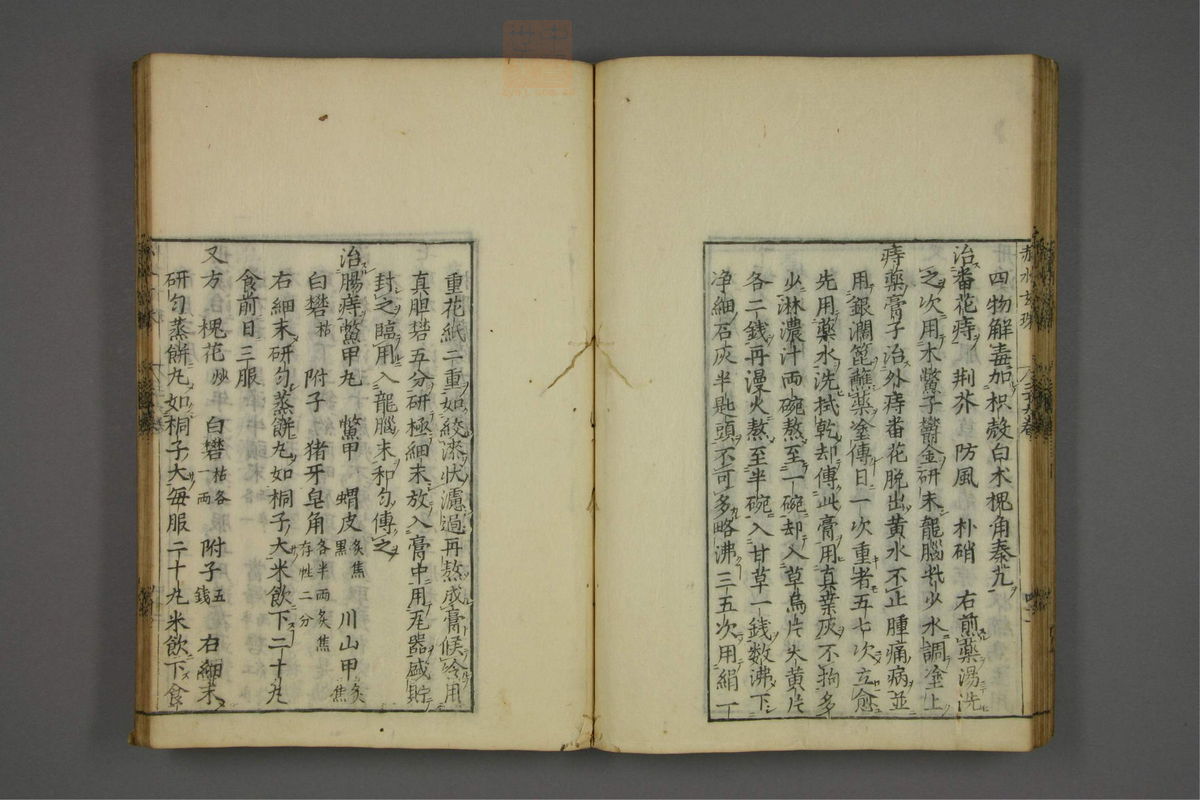 四物解毒加枳殻白朮槐角秦艽
治番花痔 荆芥 防風 朴硝 右煎藥湯洗
之次用木鱉子鬱金研末龍腦些少水調塗上
痔藥膏子治外痔番花脱出黄水不止腫痛病並
用銀瀾篦蘸藥塗傅日一次重者五七次立愈
先用藥水洗拭乾却傅此膏用真葉灰不拘多
少淋濃汁両碗熬至一碗却入草烏片大黄片
各二錢再漫火熬至半碗入甘草一錢数沸下
浄細石灰半匙頭不可多略沸三五次用絹一
重花紙二重如絞漆状濾過再熬成膏候冷用
真胆礬五分研極細末放入膏中用瓦器盛貯
封之臨用入龍腦末和匀傅之
治腸痔鱉甲丸 鱉甲 蝟皮炙焦黒 川山甲炙焦
白礬枯 附子 猪牙皂角各半両炙焦存性二分
右細末研匀蒸餅丸如桐子大米飲下二十丸
食前日三服
又方 槐花炒 白礬枯各一両 附子五錢 右細末
研匀蒸餅丸如桐子大毎服二十丸米飲下食